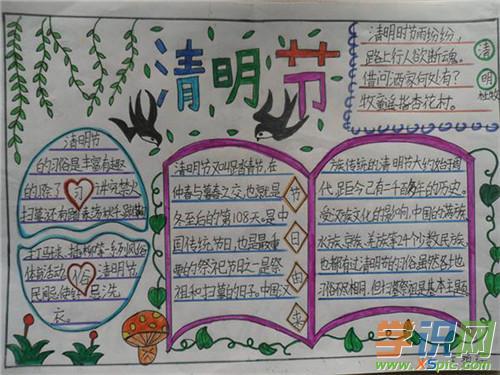 清明节
清明时节雨纷纷,
路上行人欲断魂。
借问酒家何处有?
牧童遥指杏花村。
清
明
杜牧
清明节
的习俗是丰富有趣
的,除了
习
讲究禁火
扫墓,还有
打马球、插柳等一系列风俗
体育活动
俗
清明节,
民
洗
衣。
清明节又叫踏青节,在
仲春与暮春之交,也就是
冬至后的第108天。是中
国传统节日,也是最重
要的祭祀节日之一是祭
祖和扫墓的日子。中国汉
节
日
由
来
族传统的清明节大约始于周
代,距今已有二千五百多年的历史。
受汉族文化的影响,中国的满族、
水族、京族、羌族等24个少数民族,
也都有过清明节的习俗虽然各地
习俗不尽相同,但扫墓祭祖是基本主题。
学识网
www.xspic.com